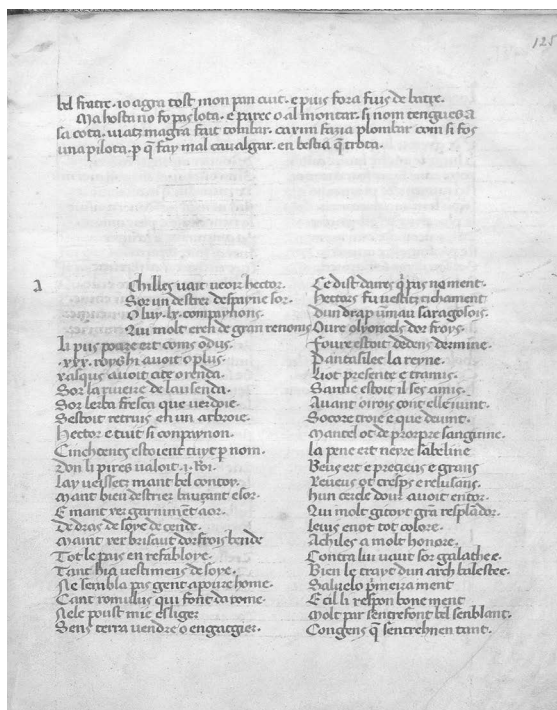 125
bel fratre. io agra tost mon pan cuit. e puis fora fius de batre.
Ma hosta no fo pas lota. e pirec o al montar. si nom tengues a
sa cota. viatz magra fait tombar. car im faria plombar com si fos
una pilota. p q̄ fay mal cavalgar. en bestia q̄ trota.
a
Chilles vait veoir hector.
Sor un destrer despayne sor.
O luy .lx. companhons.
Qui molt ereh de gran renoms
li pus povre ert coms o dus.
.xxx. roys hi avoit o plus.
Sor la riviere de
Sor lerba fresca que verdoie.
Sestoit
Hector e tuit si conpaynon.
Cinchcents estoient tuyt p nom.
Don li pires valoit .i. Roi.
Lay veissetz mant bel conroy.
Mant bien destrier bauçant e sor.
E mant ver garniment aor.
De dras de soye de cende.
Maint ver brisaut dorfrois bende
Tot le pais en refabloye.
Tant hia vestimens de soye.
Ne sembla pas gent a povre home.
Cant romulus qui fonda rome.
Nele poust mie esliger
Sens terra vendre o engatgier.
Ce dist daires q̓ pas no ment.
Hectors fu vestitz richament
dun drap
Ovre
Foure estoit dedens dermine.
Pantasilee la reyne.
Liot presente e tramis.
Sauue estoit il ses amis.
Avant oirois cont elle vint.
Socore troie e que devint.
Mantel ot de prorpre sanguine.
la pene ert neyre sabeline
Beus ert e precieus e grans
Reveus ot cresps e relusans.
hun cercle dour avoit entor.
Qui molt gitoyt grā resplādor.
levis enot tot colore.
Achiles a molt honore.
Contra lui vait sor galathee.
Bien le trayt dun arch balestee.
Saluelo p̓meira ment
E cil li respon bone ment
Molt par sentrefont bel senblant.
Congens q̄ sentrehnen tant.